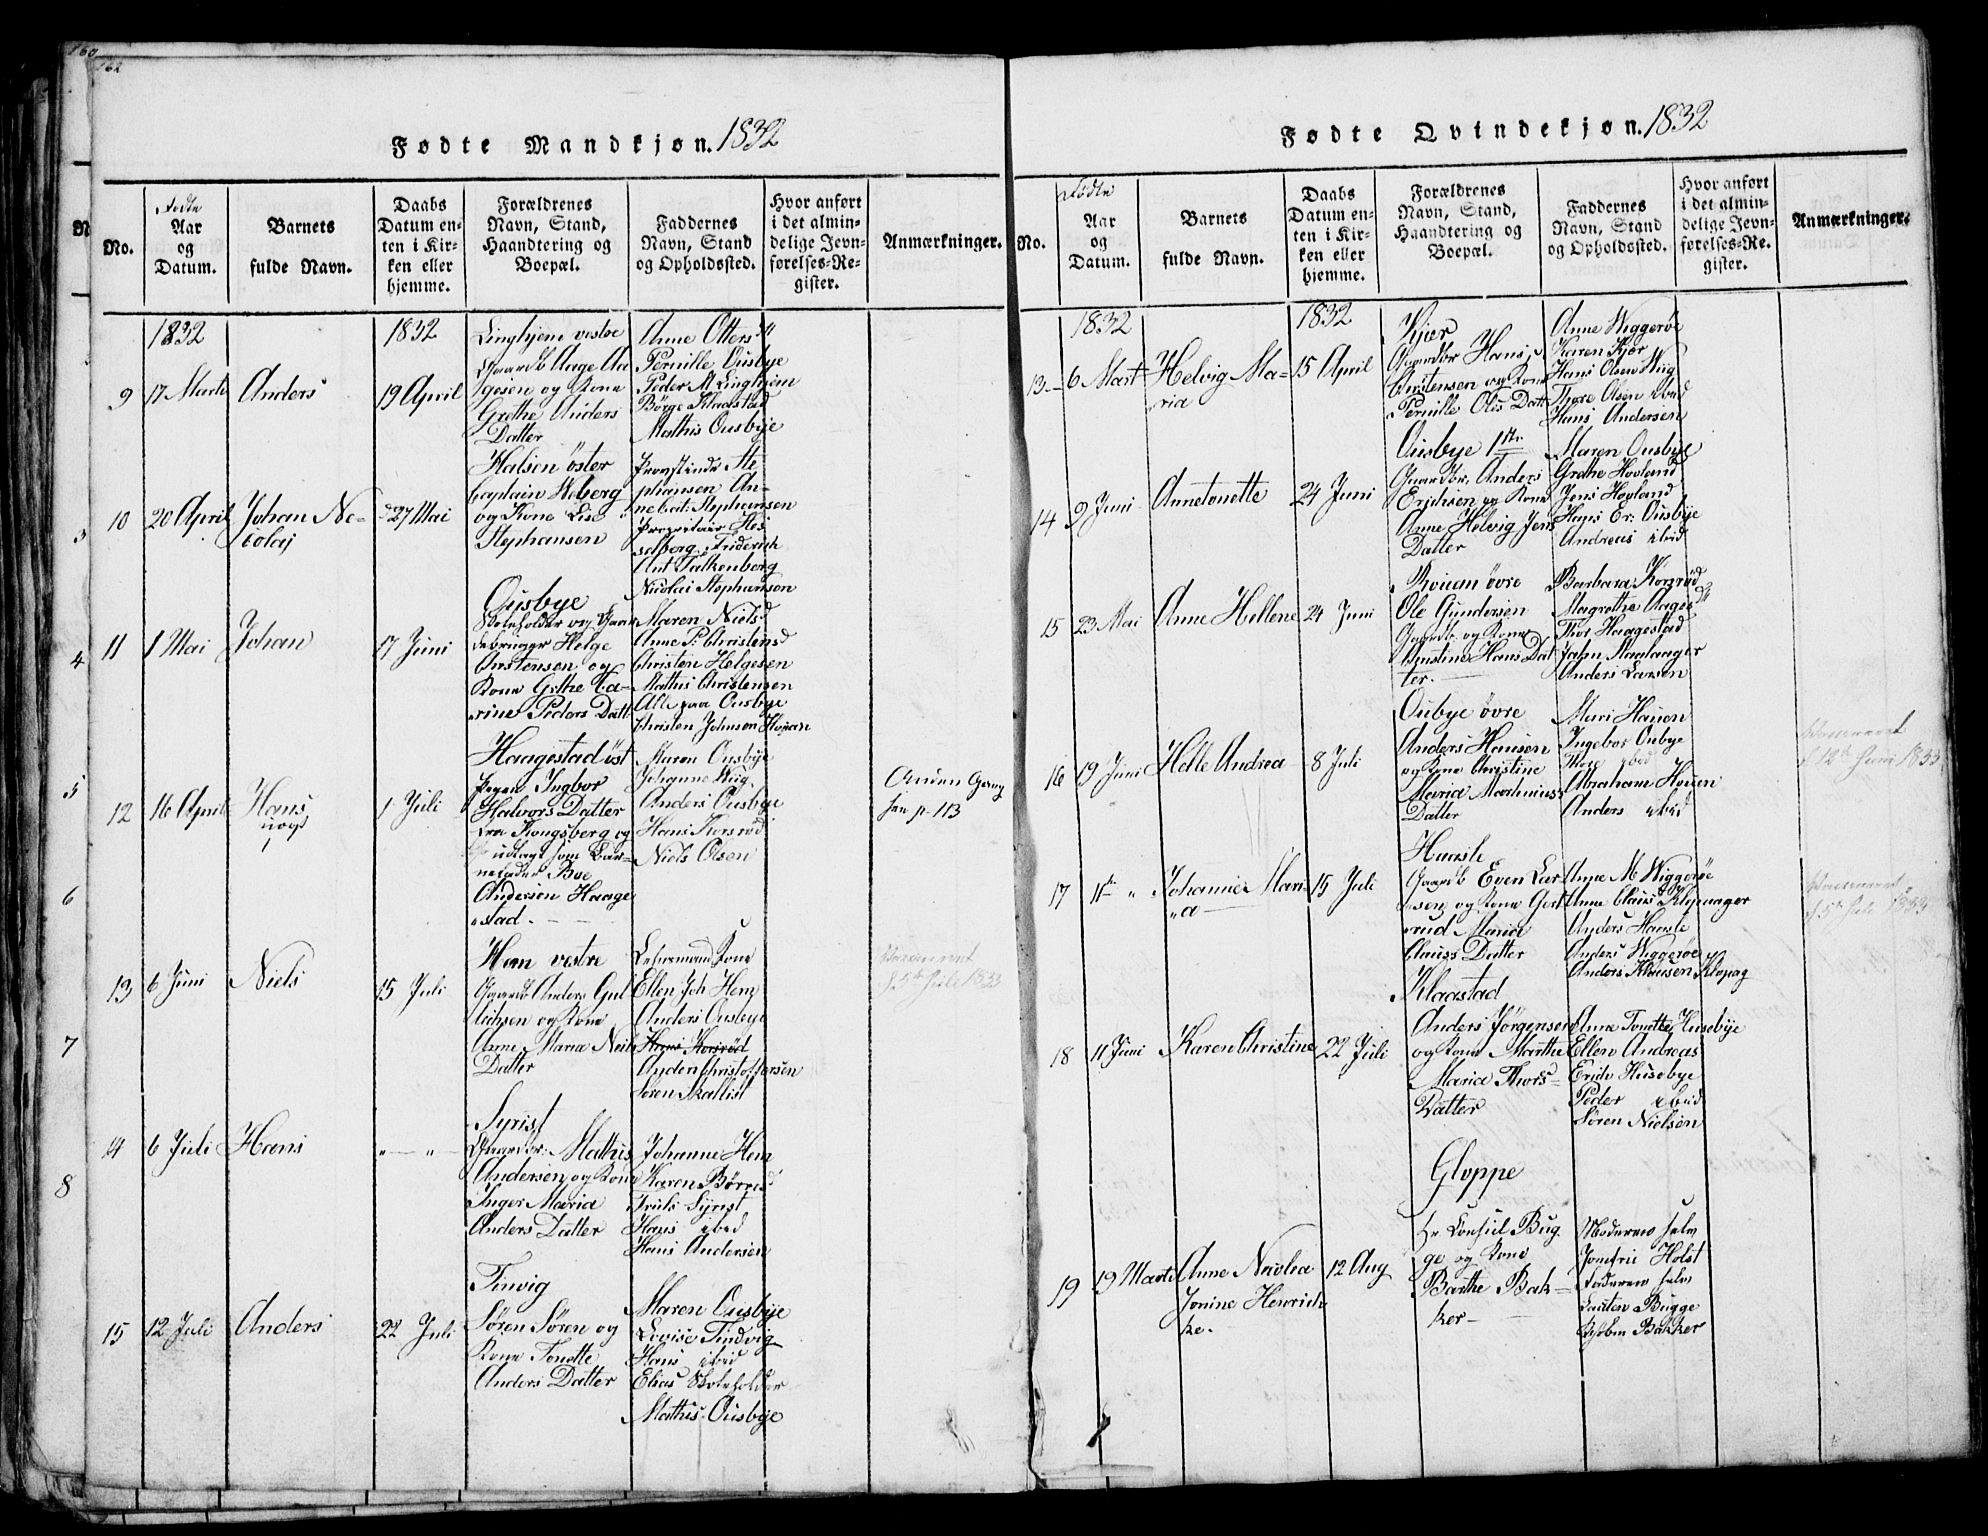 160
162
Fødte Mandkjøn. 1832
No.
Fødte
Aar
og
Datum.
Barnets
fulde Navn.
Daabs
Datum en-
ten i Kir-
ken eller
hjemme.
Forældrenes
Navn, Stand,
Haandtering og
Boepæl.
Faddernes
Navn, Stand
og Opholdssted.
Hvor anført
i det almin-
delige Jevn-
førelses-Re-
gister.
Anmærkninger.
1832
1832
9
17 Marti
Anders
19 April
Linghjem vestre
Gaardb Aage Aa
gesen og Kone
Grethe Anders
Datter
Anne Otters
Pernille Ousbye
Peder M Linghjem
Börge Klaastad
Mathis Ousbye
10
20 April
Johan Ne-
colaj
27 Mai
Halsen öster
Captain Weberg
og Kone Lise
Stephansen
Provstinde Ste
phansen An-
ne bati Stephansen
Proprietair Hes
selberg, Friderich
Ant Falkenborg
Nicolai Stephansen
11
1 Mai
Johan
17 Juni
Ousbye
Skoleholder og Gaar
debruger Helge
Christensen og
Kone Grethe Ca-
rine Peders Datt
Maren Niels
Anne P. Christens
Christen Helgesen
Mathis Christensen
Alle paa Ousbye
Christen Johnsen Klopan
12
16 April
Hans
uægt
1 Juli
Haagestad öst
Pigen Ingbor
Halvors Datter
fra Kongsberg og
udlagt som Bar-
nefader Boe
Andersen Haage
stad.
Maren Ousbye
Johanne Wug
Anders Ousbye
Hans Korsröd
Niels Olsen
Anden Gang
p. 113
13
6 Juni
Niels
15 Juli
Hem vestre
Gaardb Anders Gul
lichsen og Kone
Anne Maria Neils
Datter
Lehnsmand Kone
Ellen Joh Hem
Anders Ousbye
Hans Korsröd
Anden Christoffersen
Sören Skallist
Vaccineret
d 5te Juli 1833
14
6 Juli
Hans
" — "
Syrist
Gaardbr. Mathis
Andersen og Kone
Inger Maria
Anders Datter
Johanne Hem
Karen Börres
Truls Syrist
Hans ibid
Hans Andersen
15
12 Juli
Anders
22 Juli
Tinvig
Sören Sören og
Kone Tonette
Anders Datter
Maren Ousbye
Lovise Tindvig
Hans ibid
Elias Skoleholder
Mathis Ousbye
Fødte Qvindekjøn. 1832
No.
Fødte
Aar
og
Datum.
Barnets
fulde Navn.
Daabs
Datum en-
ten i Kir-
ken eller
hjemme.
Forældrenes
Navn, Stand,
Haandtering og
Boepæl.
Faddernes
Navn, Stand
og Opholdssted.
Hvor anført
i det almin-
delige Jevn-
førelses-Re-
gister.
Anmærkninger.
1832
1832
13
6 Mart
Helvig Ma-
ria
15 April
Kjær
Gaardbr Hans
Christensen og Kone
Pernille Oles Datt
Anne Wiggeröe
Karen Kjör
Hans Olsen Wug
Thore Olsen ibid
Hans Andersen
14
9 Juni
Annetonette
24 Juni
Ousbye
Gaardbr. Anders
Erichsen og Kone
Anne Helvig Jens
Datter
Maren Ousbye
Grethe Hovland
Jens Hovland
Hans Er. Ousbye
Andreas ibid
15
23 Mai
Anne Hellene
24 Juni
Rouan övre
Ole Gundersen
Gaardb. og Kone
Christine Hans Dat
ter.
Barbara Korsröd
Magrethe Aages
Thor Haagestad
Jahn Maalanger
Anders Larsen
16
19 Juni
Helle Andrea
8 Juli
Oubye övre
Anders Hansen
og Kone Christine
Maria Marthinus
Datter
Mari Hauen
Ingebor Oubye
Thore ibid
Abraham Houen
Anders ibid
Vaccineret
d 12te Juni 1833
17
11te "
Johanne Mari-
a
15 Juli
Haasle
Gaardb Even Lar
sen og Kone Gert
rud Maria
Clauss Datter
Anne M Wiggeröe
Anne Claus Klopaager
Anders Haasle
Anders Wiggeröe
Anders Klausen Klopag
Vaccineret
d 5te Juli 1833
18
11 Juni
Karen Christine
22 Juli
Klaastad
Anders Jörgensen
og Kone Marthe
Maria Thors-
Datter
Anne Tonette Husebye
Ellen Andreas
Erich Husebye
Peder ibid
Sören Nielsen
19
19 Marti
Anne Nicolea
Jonine Henrich-
ke.
12 Aug
Gloppe
Hr Consul Bug
ge og Kone
Barthe Bak-
ker
Moderen selv
Jomfru Holst
Faderen selv
Bugge
Bakker
3
4
5
6
7
8